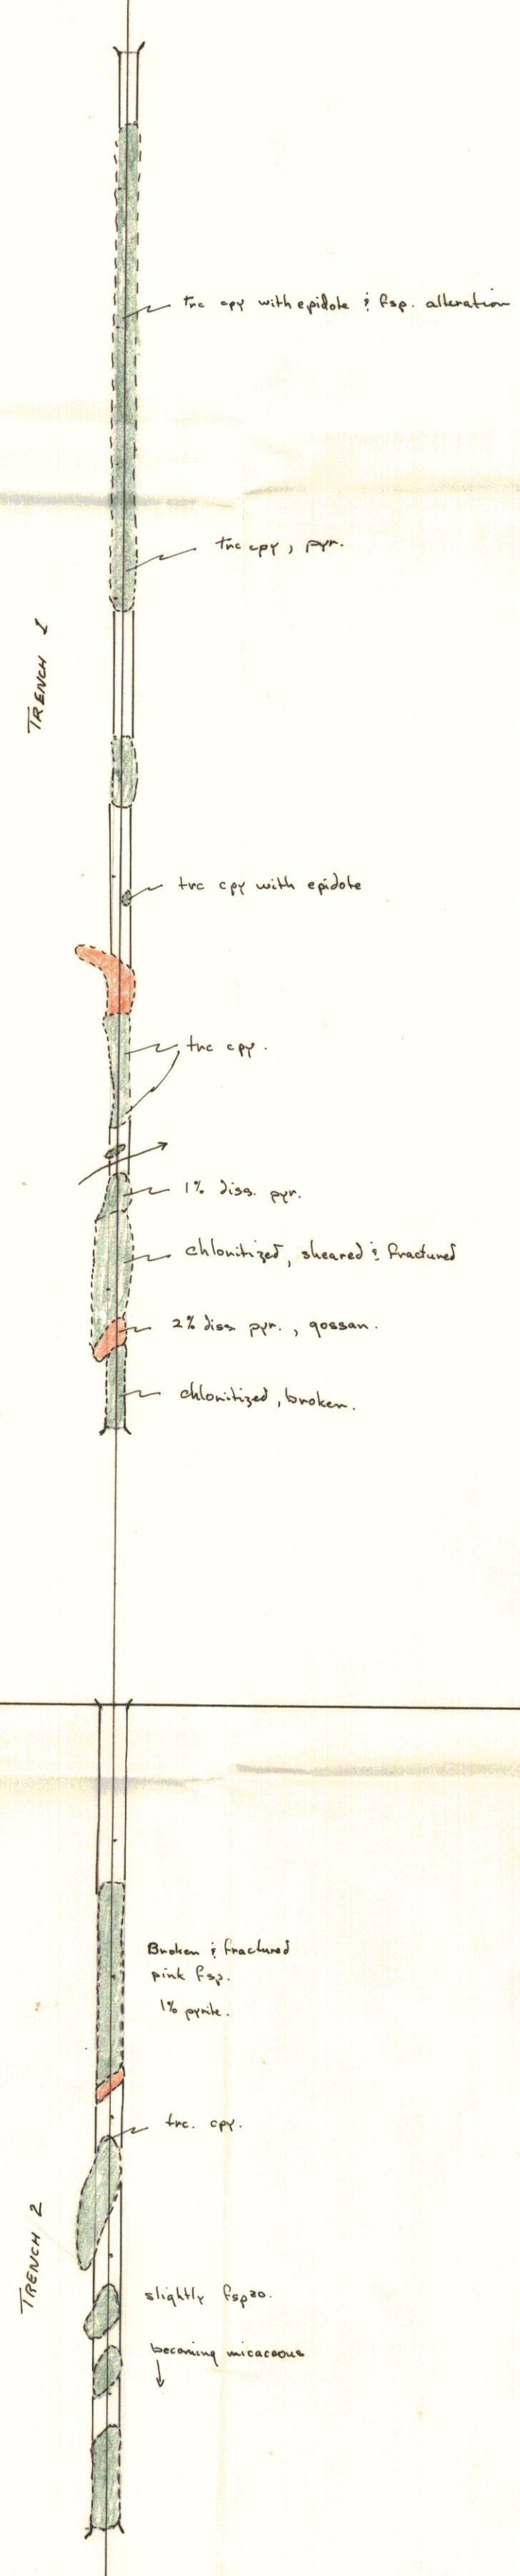 trc cpy with epidote & fsp. alteration
trc cpy, pyr.
TRENCH 1
trc cpy with epidote
trc cpy.
1% diss. pyr.
chloritized, sheared & fractured
2% diss pyr., gossan.
chloritized, broken.
Broken & fractured
pink fsp.
1% pyrite.
trc. cpy.
TRENCH 2
slightly fsp
becoming micaceous